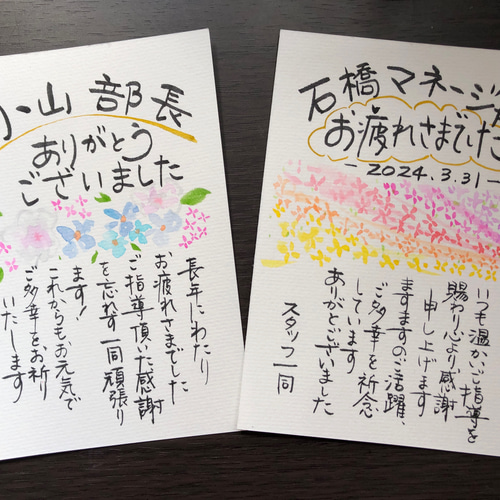 小山 部長
ありがとう
ございました
長年にわたり
お疲れさまでした
ご指導頂いた感謝
を忘れず一同頑張り
ます！
これからもお元気で
ご多幸をお祈り
いたします
石橋 マネージャ
お疲れさまでした
－2024.3.31－
いつも温かいご指導を
賜わり心より感謝
申し上げます
ますますのご活躍、
ご多幸を祈念
しています
ありがとうございました
スタッフ一同